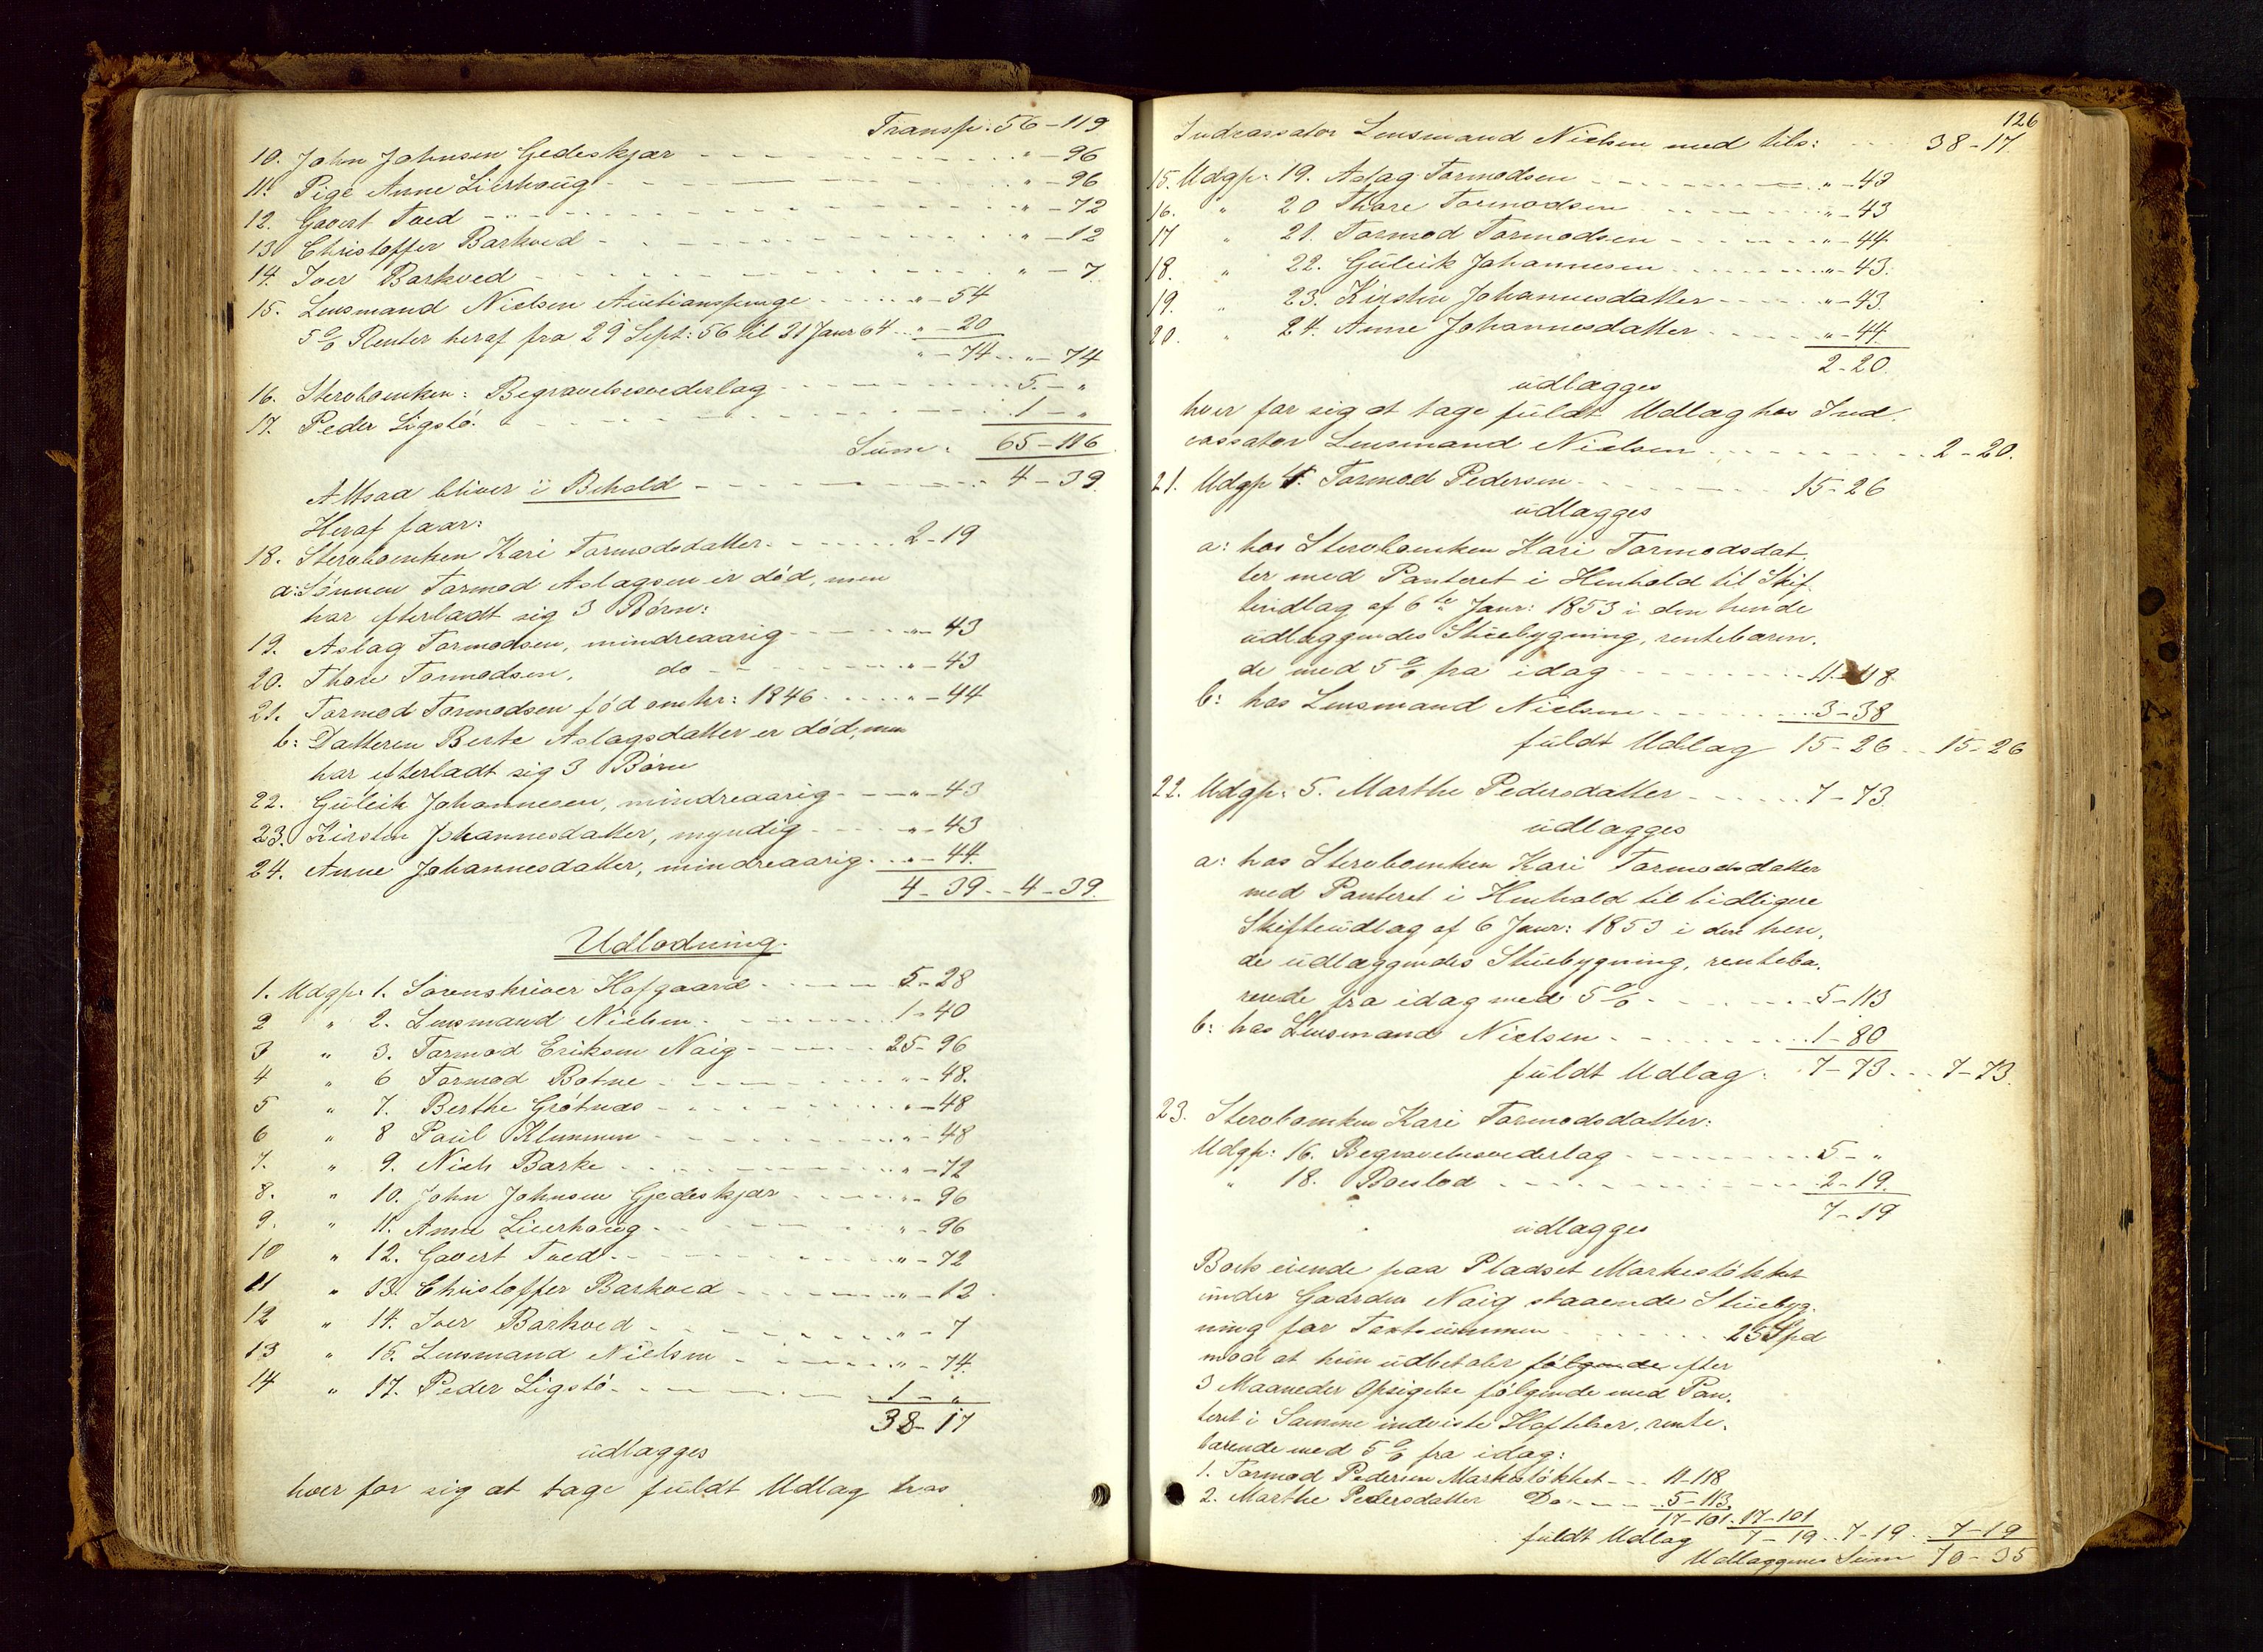 Transp: 56-119
10. John Johnsen Gedeskjær - - - " - 96
11. Pige Anne Lierhoug - - - " - 96
12. Govert Tved - - - " - 72
13 Christoffer Barkved - - - " - 12
14. Iver Barkved - - - " - 7
15. Lensmand Nielsen Auctionspenge - - - " - 54
5 % Renter heraf fra 29 Sept: 56 til 21 Janr 64 .. " - 20
" - 74 .. " - 74
16. Stervboenken: Begravelsesvederlag - - - 5. - "
17. Peder Ligstø. - - - 1 - "
Sum: 65-116
Altsaa bliver i Behold - - - 4-39.
Heraf faar:
18. Stervboenken Kari Tormodsdatter. - - - 2-19
a: Sønnen Tormod Aslagsen er død, men
har efterladt sig 3 Børn:
19. Aslag Tormodsen, mindreaarig - - - " - 43
20. Thore Tormodsen, do - - - " - 43
21. Tormod Tormodsen fød omtr: 1846 - - - " - 44
b: Datteren Berte Aslagsdatter er død, men
har efterladt sig 3 Børn
22. Guleik Johannesen, mindreaarig - - - " - 43
23. Kirsten Johannesdatter, myndig - - - " - 43
24. Anne Johannesdatter, mindreaarig - - - " - 44.
4-39 - - 4-39.
Udlodning.
1. Udgp: 1. Sorenskriver Hofgaard - - - 5-28
2 " 2. Lensmand Nielsen - - - 1-40
3 " 3. Tormod Eriksen Naig - - - 25-96
4 " 6 Tormod Botne - - - " - 48.
5 " 7. Berthe Grøtnæs - - - " - 48
6 " 8 Paul Klummen - - - " - 48
7. " 9. Nich Barke - - - " - 72
8. " 10. John Johnsen Gjedeskjær - - - " - 96
9. " 11. Anne Lierhoug - - - " - 96
10 " 12. Govert Tved - - - " - 72
11 " 13. Christoffer Barkved - - - " - 12
12 " 14. Iver Barkved - - - " - 7
13 " 15. Lensmand Nielsen - - - " - 74.
14 " 17. Peder Ligstø - - - 1 - "
38-17
udlægges
hver for sig at tage fuldt Udlæg hos
126
Indcassator Lensmand Nielsen med tils: - - - 38-17.
15. Udgp: 19. Aslag Tormodsen - - - " - 43
16. " 20 Thore Tormodsen - - - " - 43
17 " 21. Tormod Tormodsen - - - " - 44
18. " 22. Guleik Johannesen - - - " - 43.
19. " 23. Kirsten Johannesdatter - - - " - 43.
20. " 24. Anne Johannesdatter - - - " - 44.
2-20.
udlægges
hver for sig at tage fuldt Udlæg hos Ind
cassator Lensmand Nielsen - - - 2-20.
21. Udgp 4. Tormod Pedersen - - - 15-26
udlægges
a: hos Stervboenken Kari Tormodsdat
ter med Panteret i Henhold til Skif
teudlæg af 6te Janr: 1853 i den hende
udlæggendes Stuebygning, rentebæren
de med 5 % fra idag - - - 11-118
b: hos Lensmand Nielsen - - - 3-38
fuldt Udlæg 15-26 .. 15-26
22. Udgp: 5. Marthe Pedersdatter - - - 7-73.
udlægges
a: hos Stervboenken Kari Tormodsdatter
med Panteret i Henhold til tidligere
Skifteudlæg af 6 Janr: 1853 i den hen
de udlæggendes Stuebygning, renteba
rende fra idag med 5 % - - - 5-113
b: hos Lensmand Nielsen - - - 1-80
fuldt Udlæg: 7-73 - - - 7-73.
23. Stervboenken Kari Tormodsdatter:
Udgp: 16. Begravelsesvederlag - - - 5 - "
" 18. Boeslod - - - 2-19.
7-19
udlægges
Boets eiende paa Pladset Markestøkket
under Gaarden Naig staaende Stuebyg
ning for Taxtsummen - - - 25 Spd
mod at hun udbetaler følgende efter
3 Maaneder Opsigelse følgende med Pan
teret i Samme indviste Hæftelser, rente
bærende med 5 % fra idag:
1. Tormod Pedersen Markestøkket - - - 11-118
2. Marthe Pedersdatter Do - - - 5-113
17-101 .. 17-101
fuldt Udlæg 7-19 .. 7-19 .. 7-19
Udlæggenes Sum 70-35